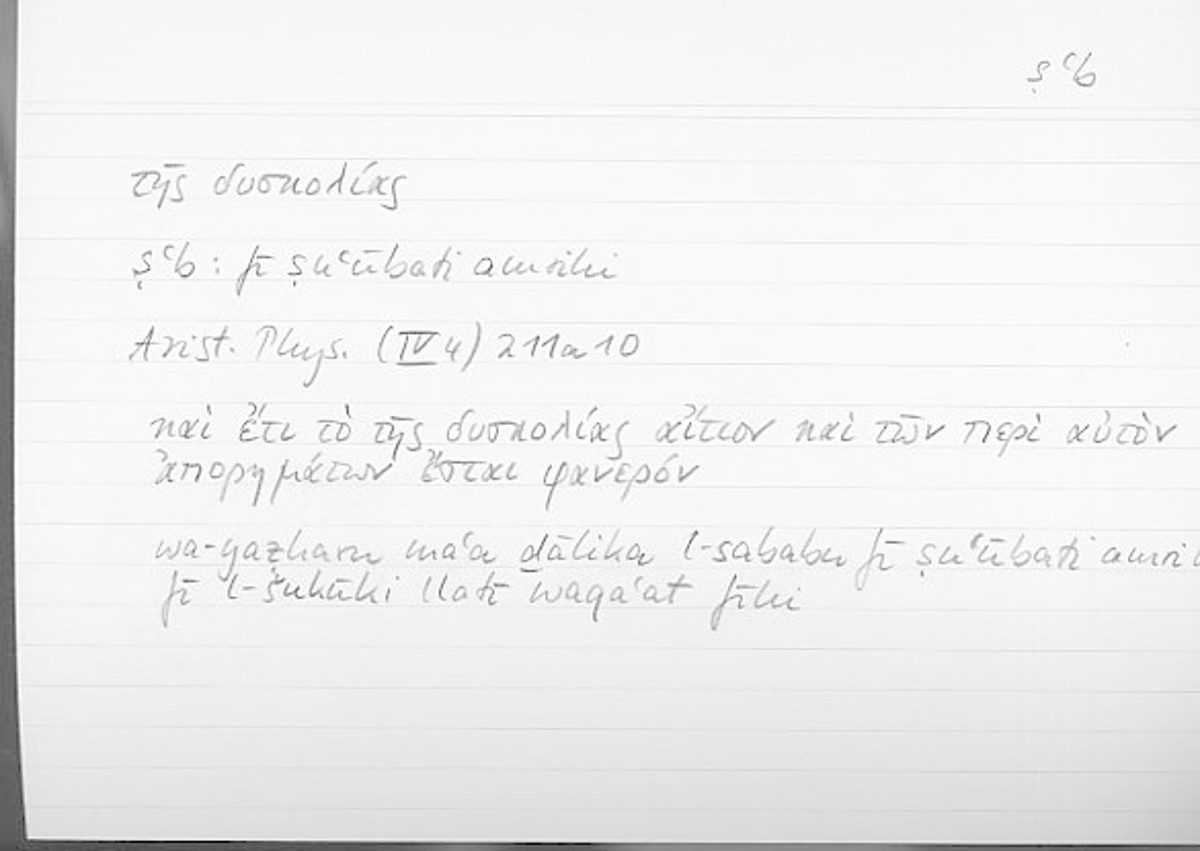 ṣʿb
τῆς δυσκολίας
ṣʿb: fī ṣuʿūbati amrihi
Arist. Phys. (IV 4) 211a10
καὶ ἔτι τὸ τῆς δυσκολίας αἴτιον καὶ τῶν περὶ αὐτὸν
ἀπορημάτων ἔσται φανερόν
wa-yaẓharu maʿa ḏālika l-sababu fī ṣuʿūbati amri
fī l-šukūki llatī waqaʿat fīhi